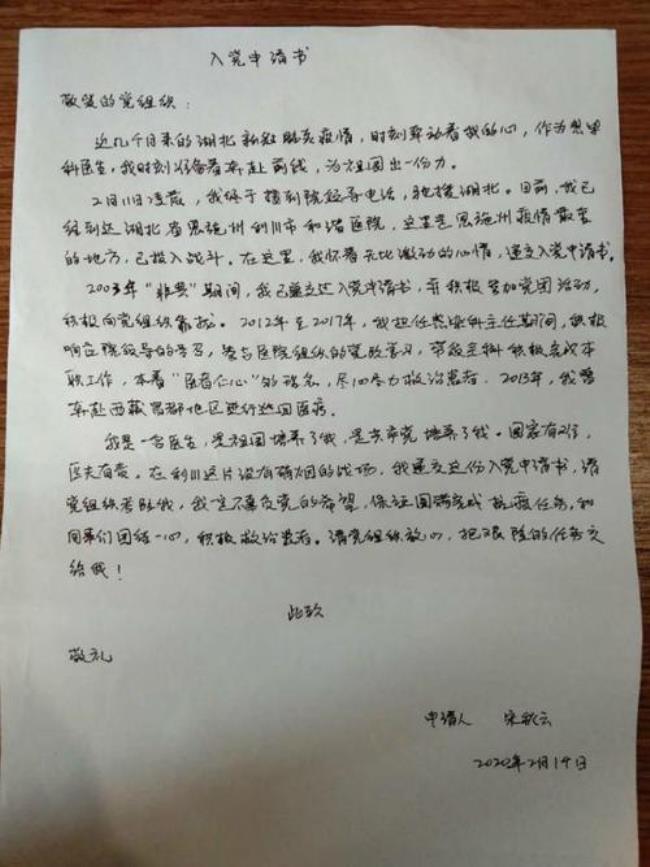 入党申请书
敬爱的党组织：
近几个月来的湖北新冠肺炎疫情，时刻牵动着我的心，作为感染
科医生，我时刻准备着奔赴前线，为祖国出一份力。
2月11日凌晨，我终于接到院领导电话，驰援湖北。目前，我已
经到达湖北省恩施州利川市和谐医院，这里是恩施州疫情最重
的地方，已投入战斗。在这里，我怀着无比激动的心情，递交入党申请书。
2003年“非典”期间，我已递交过入党申请书，并积极参加党团活动，
积极向党组织靠拢。2012年至2017年，我担任感染科主任期间，积极
响应院领导的号召，参与医院组织的党政学习，带领全科积极完成本
职工作，本着“医者仁心”的理念，尽心尽力救治患者。2013年，我曾
奔赴西藏昌都地区进行巡回医疗。
我是一名医生，是祖国培养了我，是共产党培养了我。国家有难，
匹夫有责。在利川这片没有硝烟的战场，我递交这份入党申请书，请
党组织考验我，我一定不辜负党的希望，保证圆满完成抗疫任务，和
同事们团结一心，积极救治患者。请党组织放心，把艰险的任务交
给我！
此致
敬礼
申请人 宋秋云
2020年2月14日